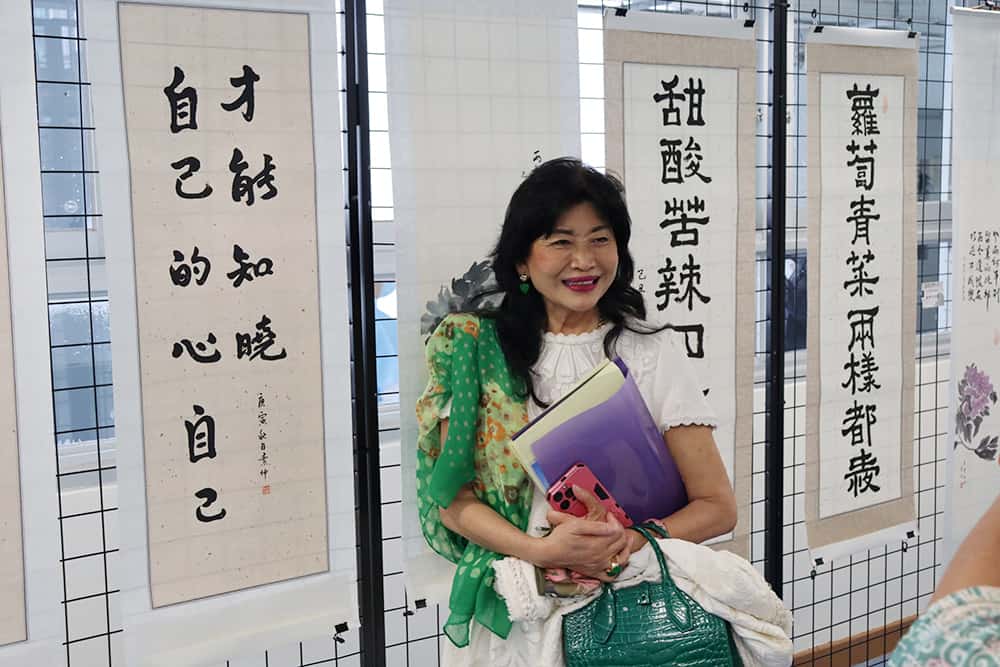 自己的心自己
才能知曉
庚寅秋
甜酸苦辣
蘿蔔青菜兩樣都愛